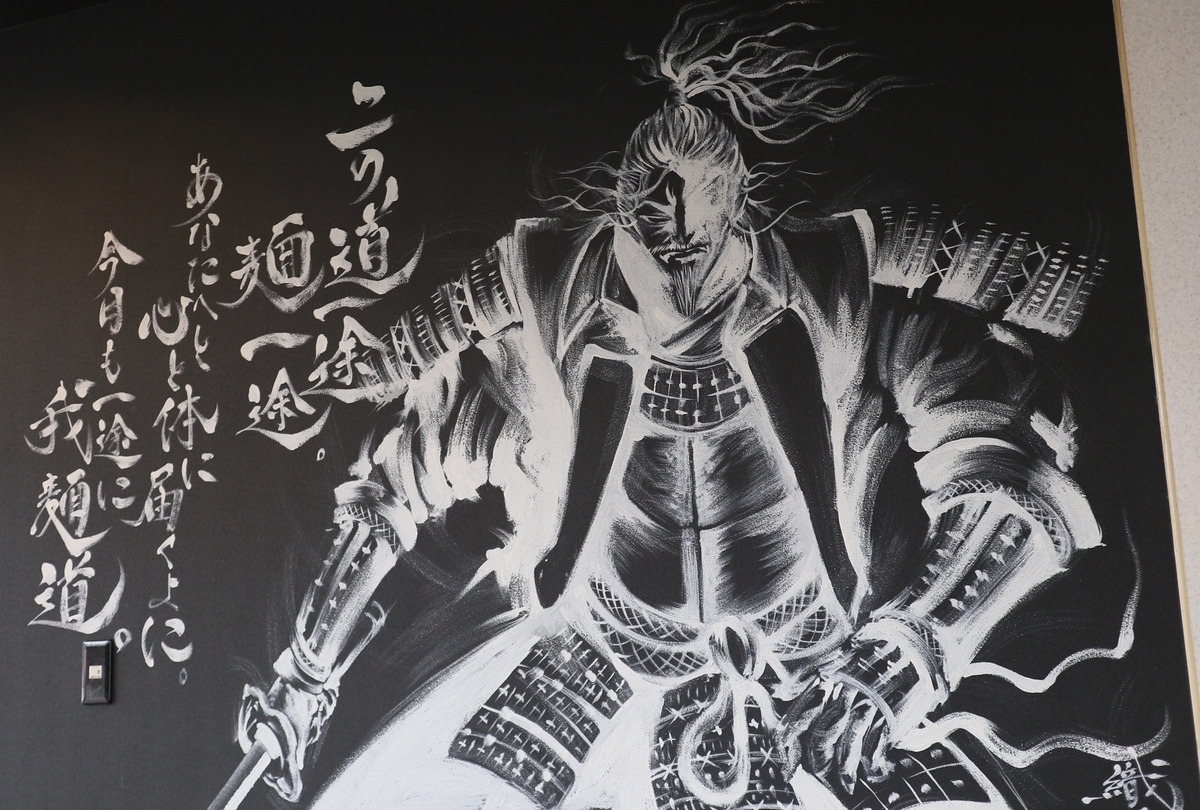 この道一途
麺一途。
あなたへと
心と体に
届くよに。
今日も一途に
我麺道。
織